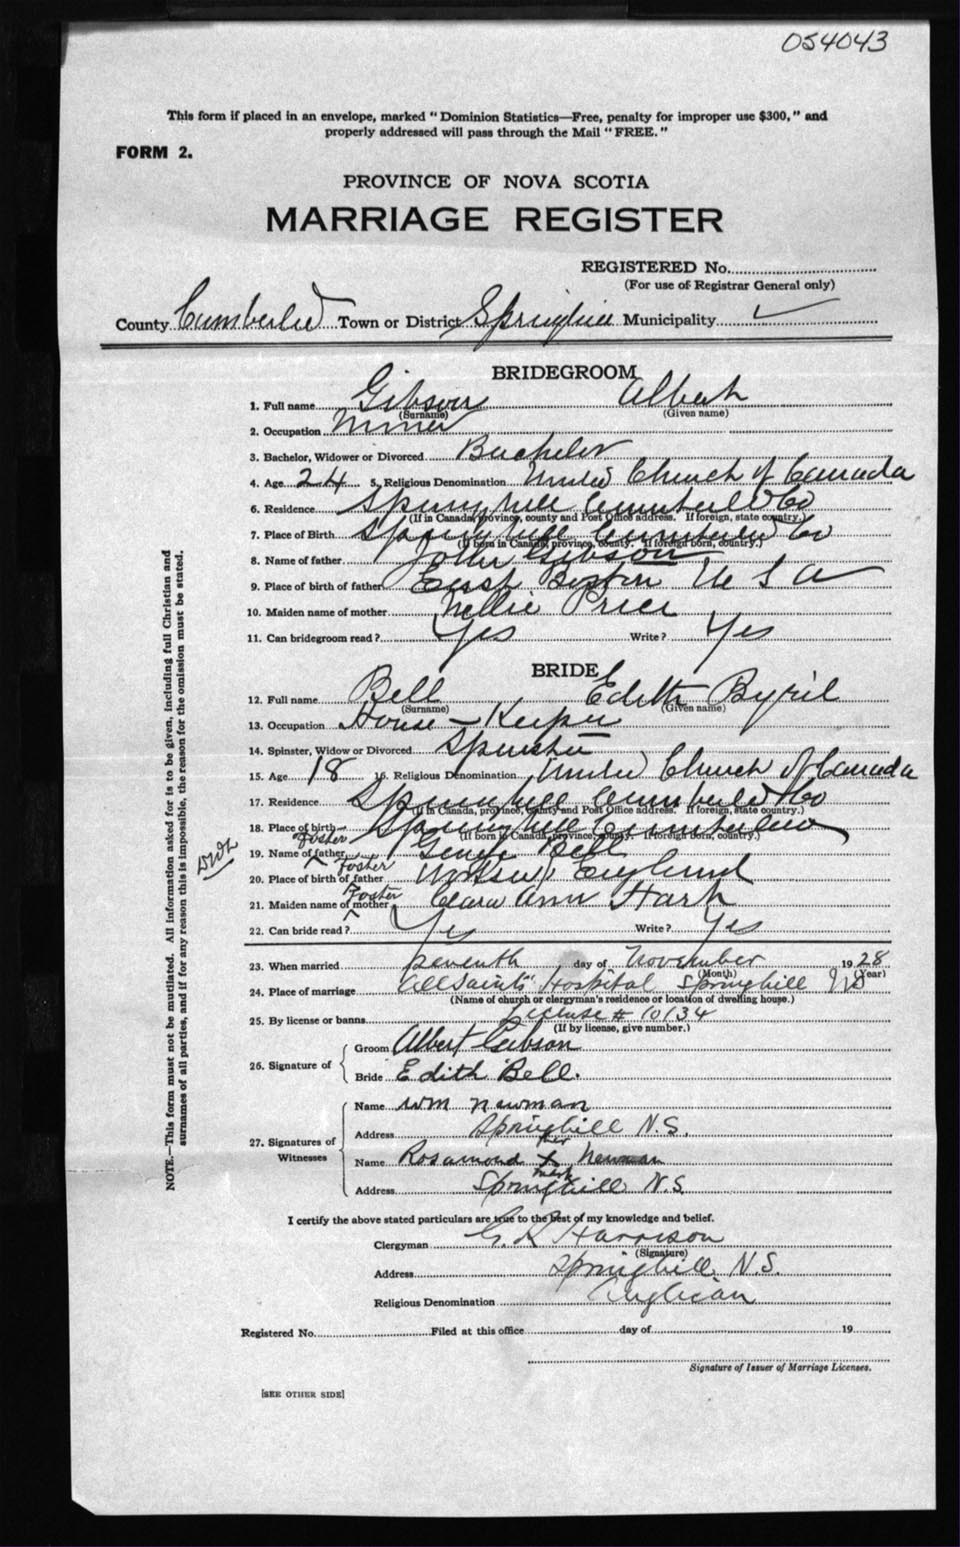 054043
This form if placed in an envelope, marked "Dominion Statistics—Free, penalty for improper use $300," and
properly addressed will pass through the Mail "FREE."
FORM 2.
PROVINCE OF NOVA SCOTIA
MARRIAGE REGISTER
REGISTERED No.
(For use of Registrar General only)
County Cumberland Town or District Springhill Municipality
BRIDEGROOM
1. Full name Gibson Albert
(Surname) (Given name)
2. Occupation Miner
3. Bachelor, Widower or Divorced Bachelor
4. Age 24 5. Religious Denomination United Church of Canada
6. Residence Springhill Cumberland Co
(If in Canada, province, county and Post Office address. If foreign, state country.)
7. Place of Birth Springhill Cumberland Co
(If born in Canada, province, county. If foreign born, country.)
8. Name of father John Gibson
9. Place of birth of father East Boston U S A
10. Maiden name of mother Nellie Price
11. Can bridegroom read? Yes Write? Yes
BRIDE
12. Full name Bell Edith Byril
(Surname) (Given name)
13. Occupation House-Keeper
14. Spinster, Widow or Divorced Spinster
15. Age 18 16. Religious Denomination United Church of Canada
17. Residence Springhill Cumberland Co
(If in Canada, province, county and Post Office address. If foreign, state country.)
18. Place of birth Springhill Cumberland
(If born in Canada, province, county. If foreign born, country.)
19. Name of Foster father George Bell
20. Place of birth of Foster father England
21. Maiden name of Foster mother Clara Ann Hark
22. Can bride read? Yes Write? Yes
23. When married seventh day of November 1928
(Month) (Year)
24. Place of marriage All Saints' Hospital Springhill NS
(Name of church or clergyman's residence or location of dwelling house.)
25. By license or banns License # 10134
(If by license, give number.)
26. Signature of
Groom Albert Gibson
Bride Edith Bell.
27. Signatures of Witnesses
Name Wm Newman
Address Springhill N.S.
Name Rosamond her X mark Newman
Address Springhill N.S.
I certify the above stated particulars are true to the best of my knowledge and belief.
Clergyman G. R Harrison
(Signature)
Address Springhill, N.S.
Religious Denomination Anglican
Registered No. Filed at this office day of 19
Signature of Issuer of Marriage Licenses.
[SEE OTHER SIDE]
NOTE.—This form must not be mutilated. All information asked for is to be given, including full Christian and
surnames of all parties, and if for any reason this is impossible, the reason for the omission must be stated.